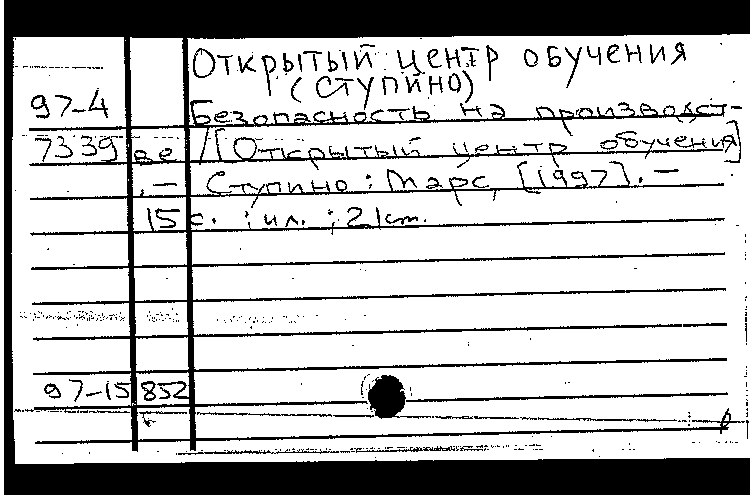 Открытый центр обучения
(Ступино)
97-4 Безопасность на производст-
7339 ве /[Открытый центр обучения]
. — Ступино : Марс, [1997]. —
15 с. : ил. ; 21 см.
97-15852